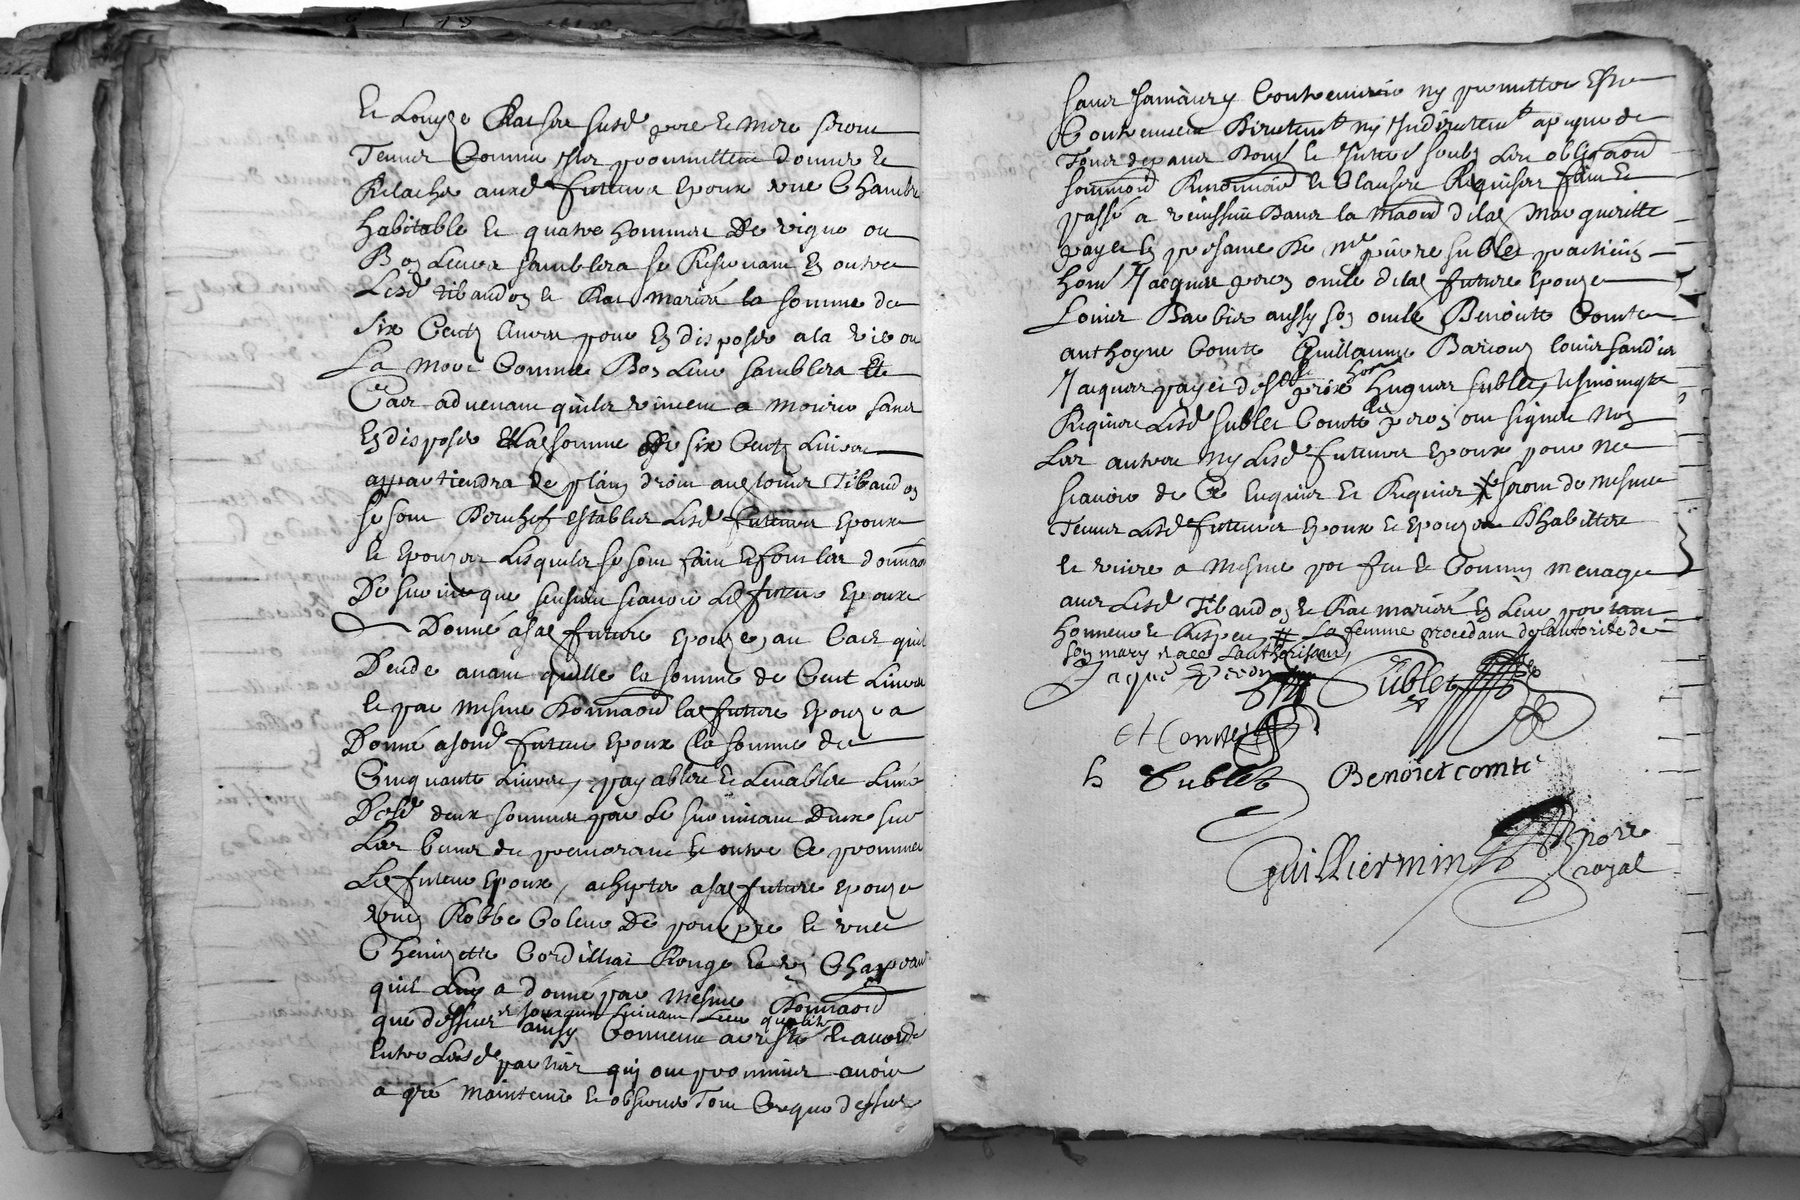 Et Louyse Rac sere susd pere et mere seront
Tenus Comme Ils promettent donner et
Relacher ausd futturs Epoux une Chambre
habitable et quatre hommes De vigne ou
Bon Leur semblera se Reservant En outre
Lesd tibaudon et Rac mariés la somme de
six Centz livres pour En disposer a la vie ou
La mort Comme Bon Leur semblera Et
Cas advenant quils vinsent a mourir sans
En disposer Lad somme De six Centz Livres
appartiendra de plain droit aud louis Tibaudon
se sont Derechef establis Lesd futturs Epoux
et Epouze Lesquels se sont fait et font les donnaons
De survie que sensuit scavoir Led futtur Epoux
Donné a sad future Epouze au Cas quil
Decede avant quelle la somme de Cent Livres
et par mesme Donnaon lad future Epouze a
Donné a sond futtur Epoux la somme de
Cinquante Livres, payables et Levables Lune
Desd deux sommes par Le survivant Deux sur
Les biens du premorant Et outre Ce promet
Led futtur Epoux, achepter a sad future Epouze
une Robbe Coleur De pourpre et une
Chemizette Cordillat Rouge et un Chappeau
quil Luy a donné par mesme Donnaon
que dessus et jouxquis suivant Leur qualité
ainsy Convenu arresté et accordé
Entre Lesd parties qui ont promis avoir
a gré maintenir et observer Tout Ce que dessus
sans jamais y Contrevenir ny permettre Estre
Contrevenu Directemt ny Indirectemt a peyne de
Tous depans Domd et Interé soubz Leur obligaon
soumion Renonciaon et Clauses Requises fait Et
passé a reissins Dans la maison dilad Margueritte
payet En presance De me pierre sublet praticien
hond Jacques peron oncle dilad future Epouze
Louis Barbier aussy son oncle Benoite Comte
anthoyne Comte Guillaume Baricon louis sandier
Jacques payet dest croix hond hugues sublet, tesmoingtz
Requis Lesd sublet Comte les peron ont signé Non
Les autres ny Lesd futturs Epoux pour Ne
scavoir de Ce Enquis et Requis # seront de mesme
Tenus Lesd futturs Epoux et Epouze Dhabitter
et vivre a mesme pot feu et Commun menage
avec Lesd Tibaudon et Rac mariés En Leur portant
honneur et Respect # La femme procedant de lautorité de
son mary a ce Lauthorisant
Jaque Peron Sublet
A Comte
h Sublet Benoiet comte
Guilliermin Nore
royal